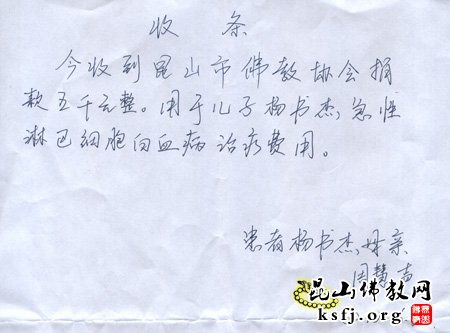 收 条
今收到昆山市佛教协会捐
款五千元整。用于儿子杨书杰,急性
淋巴细胞白血病治疗费用。
患者杨书杰母亲
昆山佛教网
ksfj.org